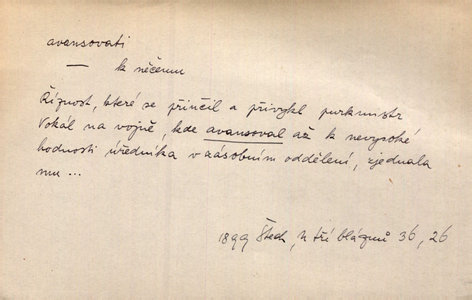 avansovati
— k něčemu
Říznost, které se přiučil a přivykl purkmistr
Vokál na vojně, kde avansoval až k nevysoké
hodnosti úředníka v zásobním oddělení, zjednala
mu ...
1899 Štech, U tří bláznů 36, 26